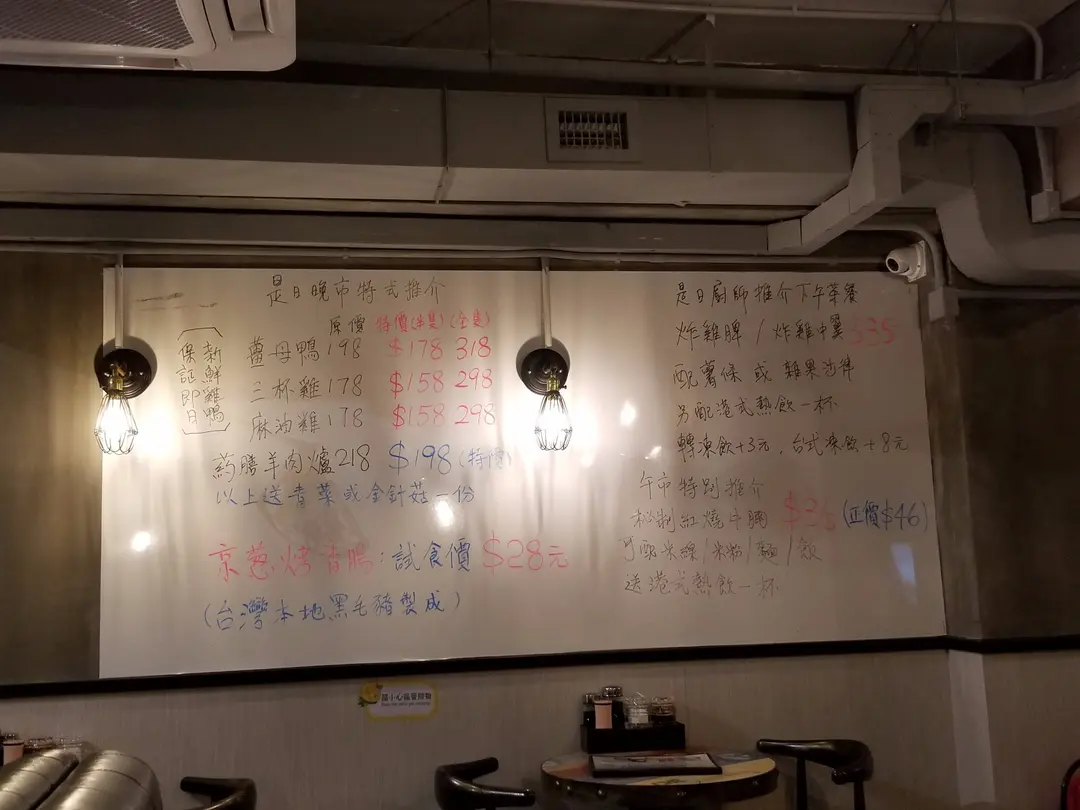 是日晚市特式推介
原價 特價(半隻) (全隻)
薑母鴨 198 $178 318
三杯雞 178 $158 298
麻油雞 178 $158 298
新鮮雞鴨
保証即日
葯膳羊肉爐 218 $198 (特價)
以上送青菜或金針菇一份
京葱烤香腸：試食價 $28元
(台灣本地黑毛豬製成)
是日廚師推介下午茶餐
炸雞髀 / 炸雞中翼 $35
配薯條 或 雜果沙律
另配港式熱飲一杯
轉凍飲+3元，台式凍飲+8元
午市特別推介
秘制紅燒牛腩 (正價$46)
可配米線/米粉/麵/飯
送港式熱飲一杯
請小心保管財物